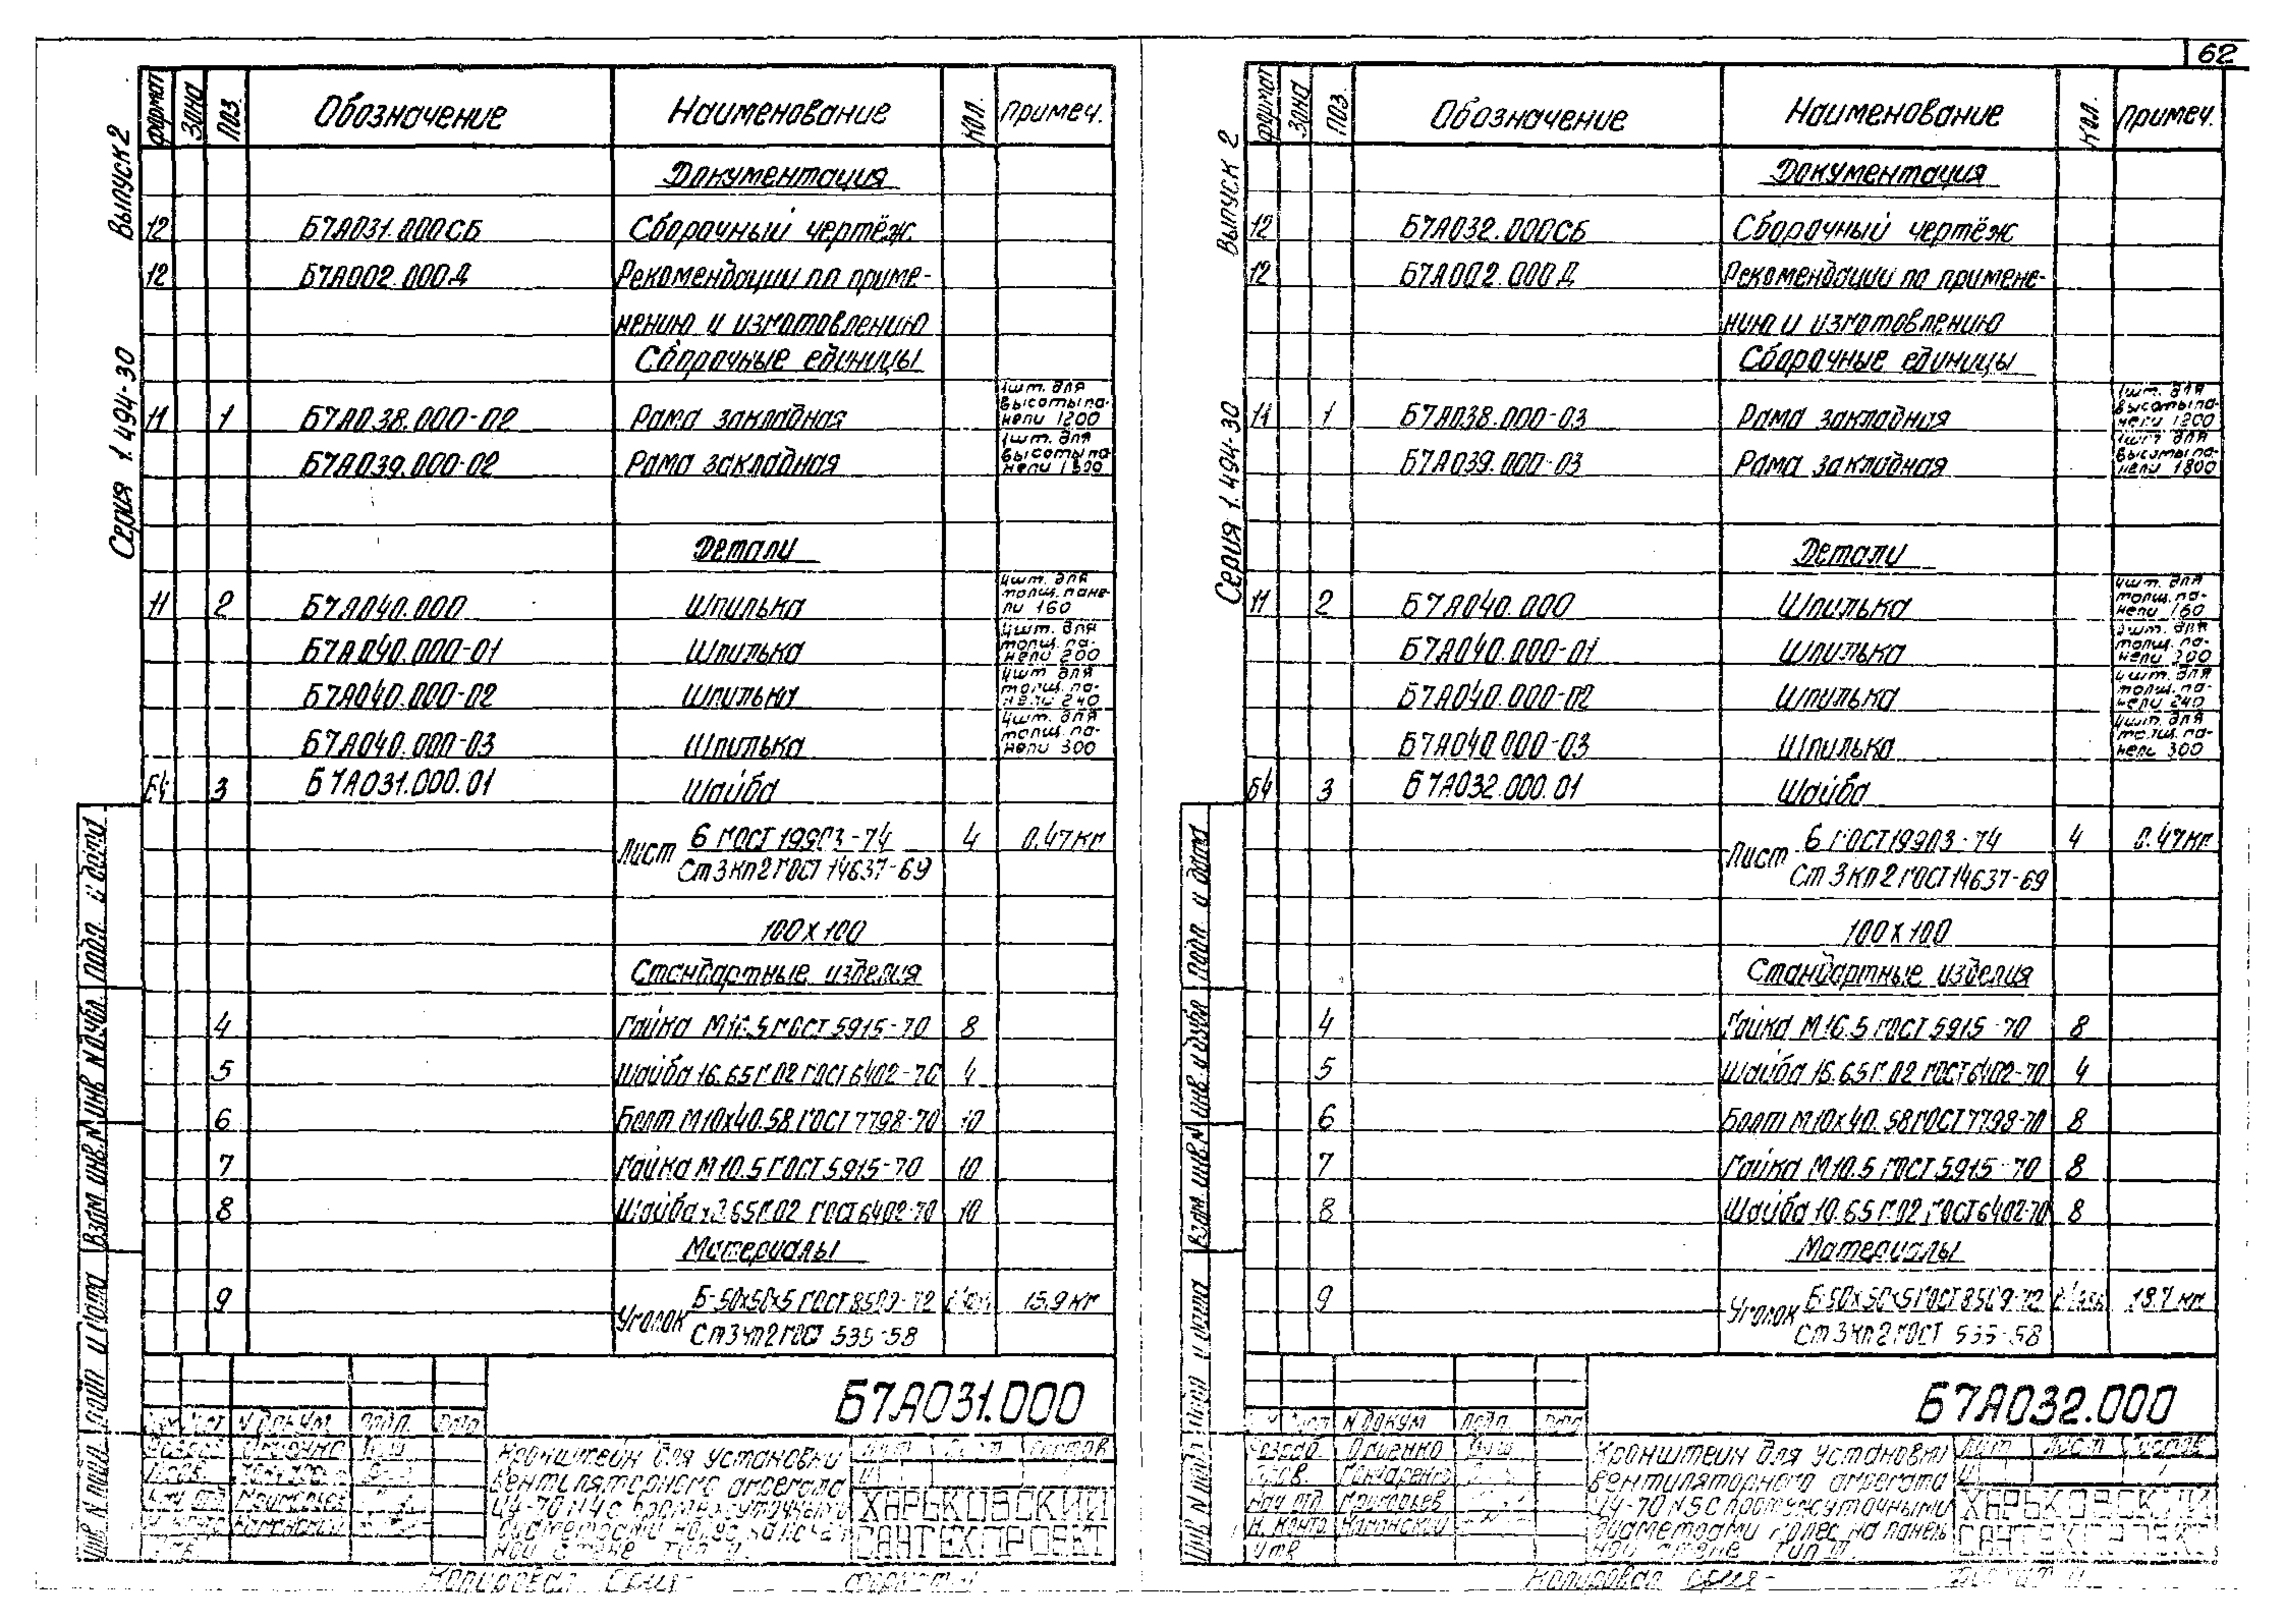 62
Выпуск 2
Серия 1.494-30
Формат Зона Поз. Обозначение Наименование Кол. Примеч.
Документация
12 Б7А031.000СБ Сборочный чертёж
12 Б7А002.000Д Рекомендации по приме-
нению и изготовлению
Сборочные единицы
11 1 Б7А038.000-02 Рама закладная 1шт. для высоты па-нели 1200
Б7А039.000-02 Рама закладная 1шт. для высоты па-нели 1800
Детали
11 2 Б7А040.000 Шпилька 4шт. для толщ. пане-ли 160
Б7А040.000-01 Шпилька 4шт. для толщ. па-нели 200
Б7А040.000-02 Шпилька 4шт для толщ. па-нели 240
Б7А040.000-03 Шпилька 4шт. для толщ. па-нели 300
Б4 3 Б7А031.000.01 Шайба
Лист 6 ГОСТ 19903-74 4 0.47кг
Ст3кп2 ГОСТ 14637-69
100х100
Стандартные изделия
4 Гайка М16.5 ГОСТ 5915-70 8
5 Шайба 16.65Г.02 ГОСТ 6402-70 4
6 Болт М10х40.58 ГОСТ 7798-70 10
7 Гайка М10.5 ГОСТ 5915-70 10
8 Шайба 10.65Г.02 ГОСТ 6402-70 10
Материалы
9 Уголок Б-50х50х5 ГОСТ 8509-72 15.9 кг
Ст3кп2 ГОСТ 535-58
Б7А031.000
N докум. Подп. Дата
Кронштейн для установки
вентиляторного агрегата
Ц4-70 N4 с промежуточными
диаметрами колес на
ной стене. Тип
Лит Лист Листов
ХАРЬКОВСКИЙ
САНТЕХПРОЕКТ
Копировал Формат 11
Подп. и дата
Инв. N дубл.
Взам. инв. N
Подп. и дата
Инв. N подл.
Выпуск 2
Серия 1.494-30
Формат Зона Поз. Обозначение Наименование Кол. Примеч.
Документация
12 Б7А032.000СБ Сборочный чертёж
12 Б7А002.000Д Рекомендации по примене-
нию и изготовлению
Сборочные единицы
11 1 Б7А038.000-03 Рама закладная 1шт. для высоты па-нели 1200
Б7А039.000-03 Рама закладная 1шт для высоты па-нели 1800
Детали
11 2 Б7А040.000 Шпилька 4шт. для толщ. па-нели 160
Б7А040.000-01 Шпилька 4шт. для толщ. па-нели 200
Б7А040.000-02 Шпилька 4шт. для толщ. па-нели 240
Б7А040.000-03 Шпилька 4шт. для толщ. па-нели 300
Б4 3 Б7А032.000.01 Шайба
Лист 6 ГОСТ 19903-74 4 0.47кг
Ст3кп2 ГОСТ 14637-69
100х100
Стандартные изделия
4 Гайка М16.5 ГОСТ 5915-70 8
5 Шайба 16.65Г.02 ГОСТ 6402-70 4
6 Болт М10х40.58 ГОСТ 7798-70 8
7 Гайка М10.5 ГОСТ 5915-70 8
8 Шайба 10.65Г.02 ГОСТ 6402-70 8
Материалы
9 Уголок Б-50х50х5 ГОСТ 8509-72 18.7 кг
Ст3кп2 ГОСТ 535-58
Б7А032.000
N докум Подп. Дата
Разраб.
Пров. Гончаренко
Нач. отд. Григорьев
Н. контр.
Утв
Кронштейн для установки
вентиляторного агрегата
Ц4-70 N5 с промежуточными
диаметрами колес на панель
ной стене. Тип
Лит Лист Листов
ХАРЬКОВСКИЙ
САНТЕХПРОЕКТ
Копировал Формат 11
Подп. и дата
Инв. N дубл
Взам. инв. N
Подп. и дата
Инв. N подл